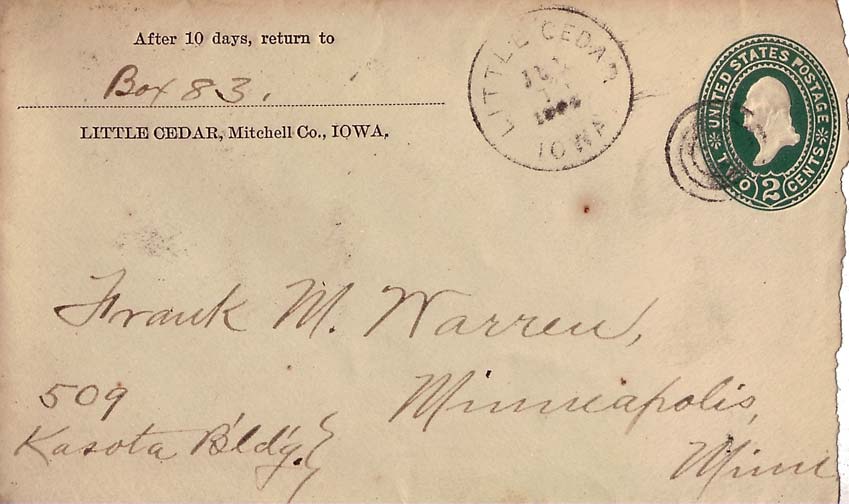 After 10 days, return to
Box 83.
LITTLE CEDAR, Mitchell Co., IOWA.
LITTLE CEDAR
IOWA
UNITED STATES POSTAGE
TWO 2 CENTS
Frank M. Warren,
509 Minneapolis,
Kasota Bld'g. Minn